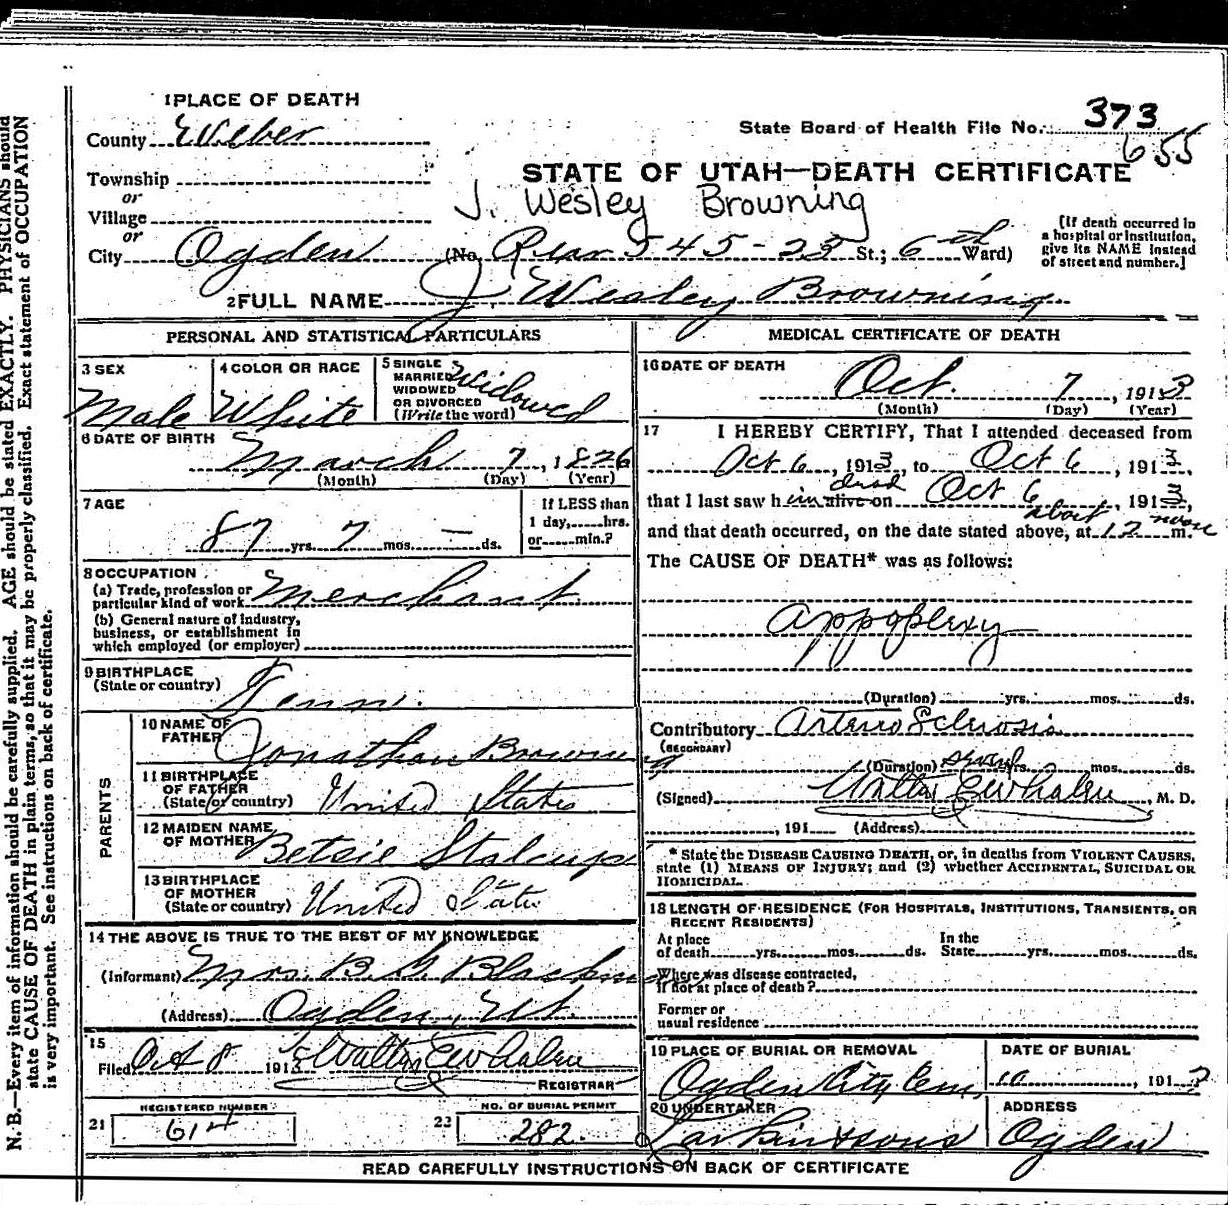 1 PLACE OF DEATH
County Weber
Township
or
Village
or
City Ogden (No. Rear 545-23 St.; 6th Ward)
State Board of Health File No. 373
655
STATE OF UTAH—DEATH CERTIFICATE
J. Wesley Browning
[If death occurred in
a hospital or institution,
give its NAME instead
of street and number.]
2 FULL NAME J. Wesley Browning
PERSONAL AND STATISTICAL PARTICULARS
3 SEX
Male
4 COLOR OR RACE
White
5 SINGLE
MARRIED
WIDOWED
OR DIVORCED
(Write the word)
Widowed
6 DATE OF BIRTH
March 7, 1826
(Month) (Day) (Year)
7 AGE
87 yrs. 7 mos. — ds.
If LESS than
1 day, hrs.
or min.?
8 OCCUPATION
(a) Trade, profession or
particular kind of work Merchant
(b) General nature of industry,
business, or establishment in
which employed (or employer)
9 BIRTHPLACE
(State or country) Tenn.
PARENTS
10 NAME OF
FATHER Jonathan Browning
11 BIRTHPLACE
OF FATHER
(State or country) United States
12 MAIDEN NAME
OF MOTHER Betsie Stalcup
13 BIRTHPLACE
OF MOTHER
(State or country) United State
14 THE ABOVE IS TRUE TO THE BEST OF MY KNOWLEDGE
(Informant) Mrs. B. G.
(Address) Ogden, Ut.
15
Filed Oct 8 1913 Walter E Whalen
REGISTRAR
REGISTERED NUMBER
21 614
NO. OF BURIAL PERMIT
22 282.
MEDICAL CERTIFICATE OF DEATH
16 DATE OF DEATH
Oct. 7, 1913
(Month) (Day) (Year)
17 I HEREBY CERTIFY, That I attended deceased from
Oct 6, 1913, to Oct 6, 1913,
dead
that I last saw him alive on Oct 6, 1913
about noon
and that death occurred, on the date stated above, at 12 m.
The CAUSE OF DEATH* was as follows:
Appoplexy
(Duration) yrs. mos. ds.
Contributory Arterio Sclerosis
(SECONDARY)
(Duration) yrs. mos. ds.
(Signed) Walter E Whalen, M. D.
, 191 (Address)
* State the DISEASE CAUSING DEATH, or, in deaths from VIOLENT CAUSES,
state (1) MEANS OF INJURY; and (2) whether ACCIDENTAL, SUICIDAL OR
HOMICIDAL.
18 LENGTH OF RESIDENCE (FOR HOSPITALS, INSTITUTIONS, TRANSIENTS, OR
RECENT RESIDENTS)
At place
of death yrs. mos. ds.
In the
State yrs. mos. ds.
Where was disease contracted,
if not at place of death?
Former or
usual residence
19 PLACE OF BURIAL OR REMOVAL
Ogden City Cem.
DATE OF BURIAL
10, 191
20 UNDERTAKER
Larkin & Sons
ADDRESS
Ogden
READ CAREFULLY INSTRUCTIONS ON BACK OF CERTIFICATE
N. B.—Every item of information should be carefully supplied. AGE should be stated EXACTLY. PHYSICIANS should
state CAUSE OF DEATH in plain terms, so that it may be properly classified. Exact statement of OCCUPATION
is very important. See instructions on back of certificate.